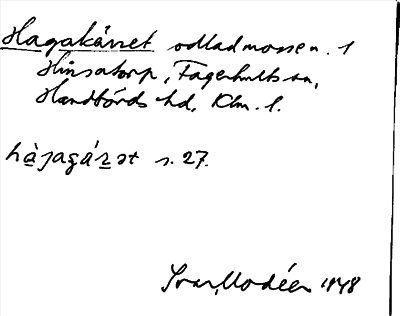 Hagakärret odlad mosse n. 1
Hinsatorp, Fagerhults sn,
Handbörds hd, Klm. l.
hàjagárət s. 27.
Ivar Modéer 1948